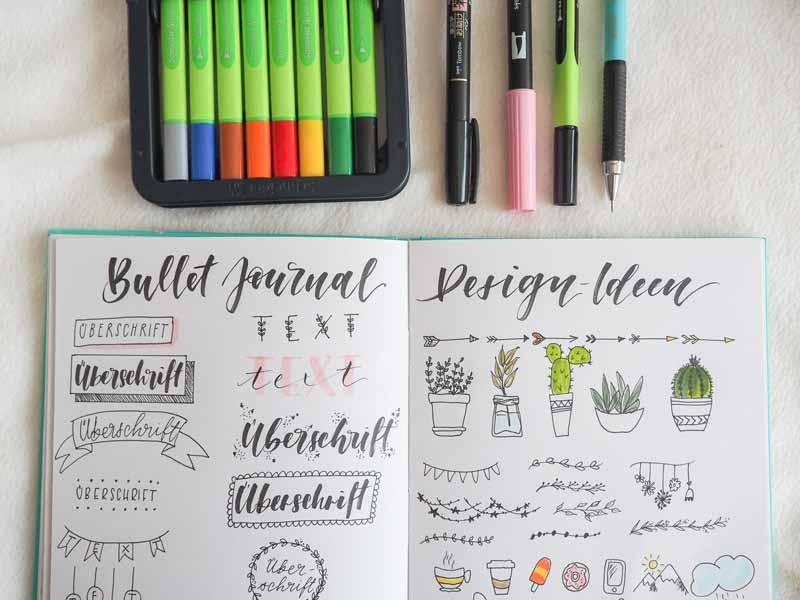 Schneider
Tombow
Bullet Journal
ÜBERSCHRIFT
Überschrift
Überschrift
ÜBERSCHRIFT
TEXT
TEXT
TEXT
text
Überschrift
Überschrift
Über-
schrift
Design-Ideen